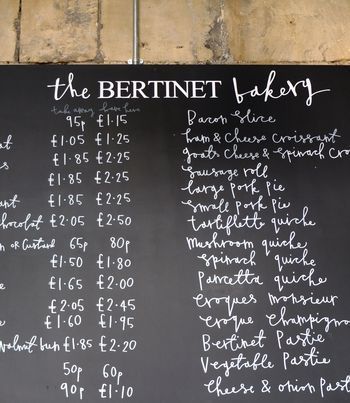 the BERTINET bakery
take away have here
95p £1.15
£1.05 £1.25
£1.85 £2.25
£1.85 £2.25
£1.85 £2.25
£2.05 £2.50
or Custard 65p 80p
£1.50 £1.80
£1.65 £2.00
£2.05 £2.45
£1.60 £1.95
walnut bun £1.85 £2.20
50p 60p
90p £1.10
Bacon Slice
ham & Cheese Croissant
goats Cheese & Spinach Cro
Sausage roll
large Pork Pie
Small Pork Pie
tartiflette quiche
Mushroom quiche
Spinach quiche
Pancetta quiche
Croques Monsieur
Croque Champigno
Bertinet Pastie
Vegetable Pastie
Cheese & onion Past